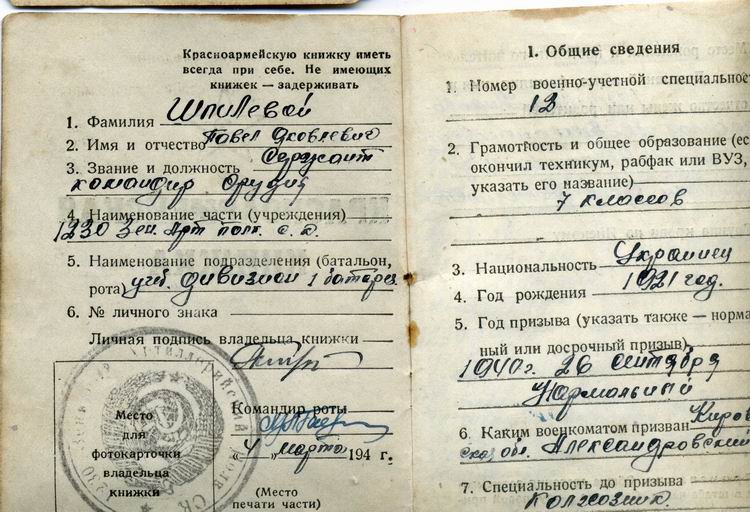 Красноармейскую книжку иметь
всегда при себе. Не имеющих
книжек — задерживать
1. Фамилия Шпилевой
2. Имя и отчество Павел Яковлевич
3. Звание и должность Сержант
командир орудия
4. Наименование части (учреждения)
1230 Зен. Арт полк. с. д.
5. Наименование подразделения (батальон,
рота) учеб. дивизион 1 батарея
6. № личного знака
Личная подпись владельца книжки
Командир роты
„4„ марта 194 г.
Место
для
фотокарточки
владельца
книжки
(Место
печати части)
1. Общие сведения
1. Номер военно-учетной специальнос
13
2. Грамотность и общее образование (ес
окончил техникум, рабфак или ВУЗ,
указать его название)
7 классов
3. Национальность Украинец
4. Год рождения 1921 год.
5. Год призыва (указать также — норма
ный или досрочный призыв)
1940 г. 26 сентября
Нормальный
6. Каким военкоматом призван Киров
обл. Александровский
7. Специальность до призыва
колхозник.